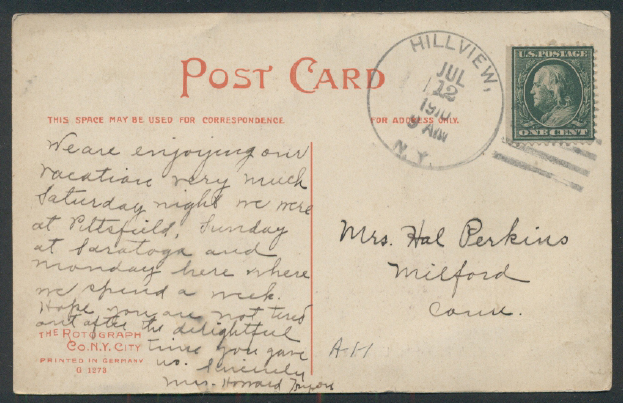 POST CARD
THIS SPACE MAY BE USED FOR CORRESPONDENCE.
FOR ADDRESS ONLY.
HILLVIEW,
JUL
12
1910
9 AM
N.Y.
U.S. POSTAGE
ONE CENT
We are enjoying our
vacation very much
Saturday night we were
at Pittsfield, Sunday
at Saratoga and
Monday here where
we spend a week.
Hope you are not tired
out after the delightful
time you gave
us. Sincerely
Mrs. Howard
Mrs. Hal Perkins
Milford
Conn.
THE ROTOGRAPH
CO. N.Y. CITY
PRINTED IN GERMANY
G 1273